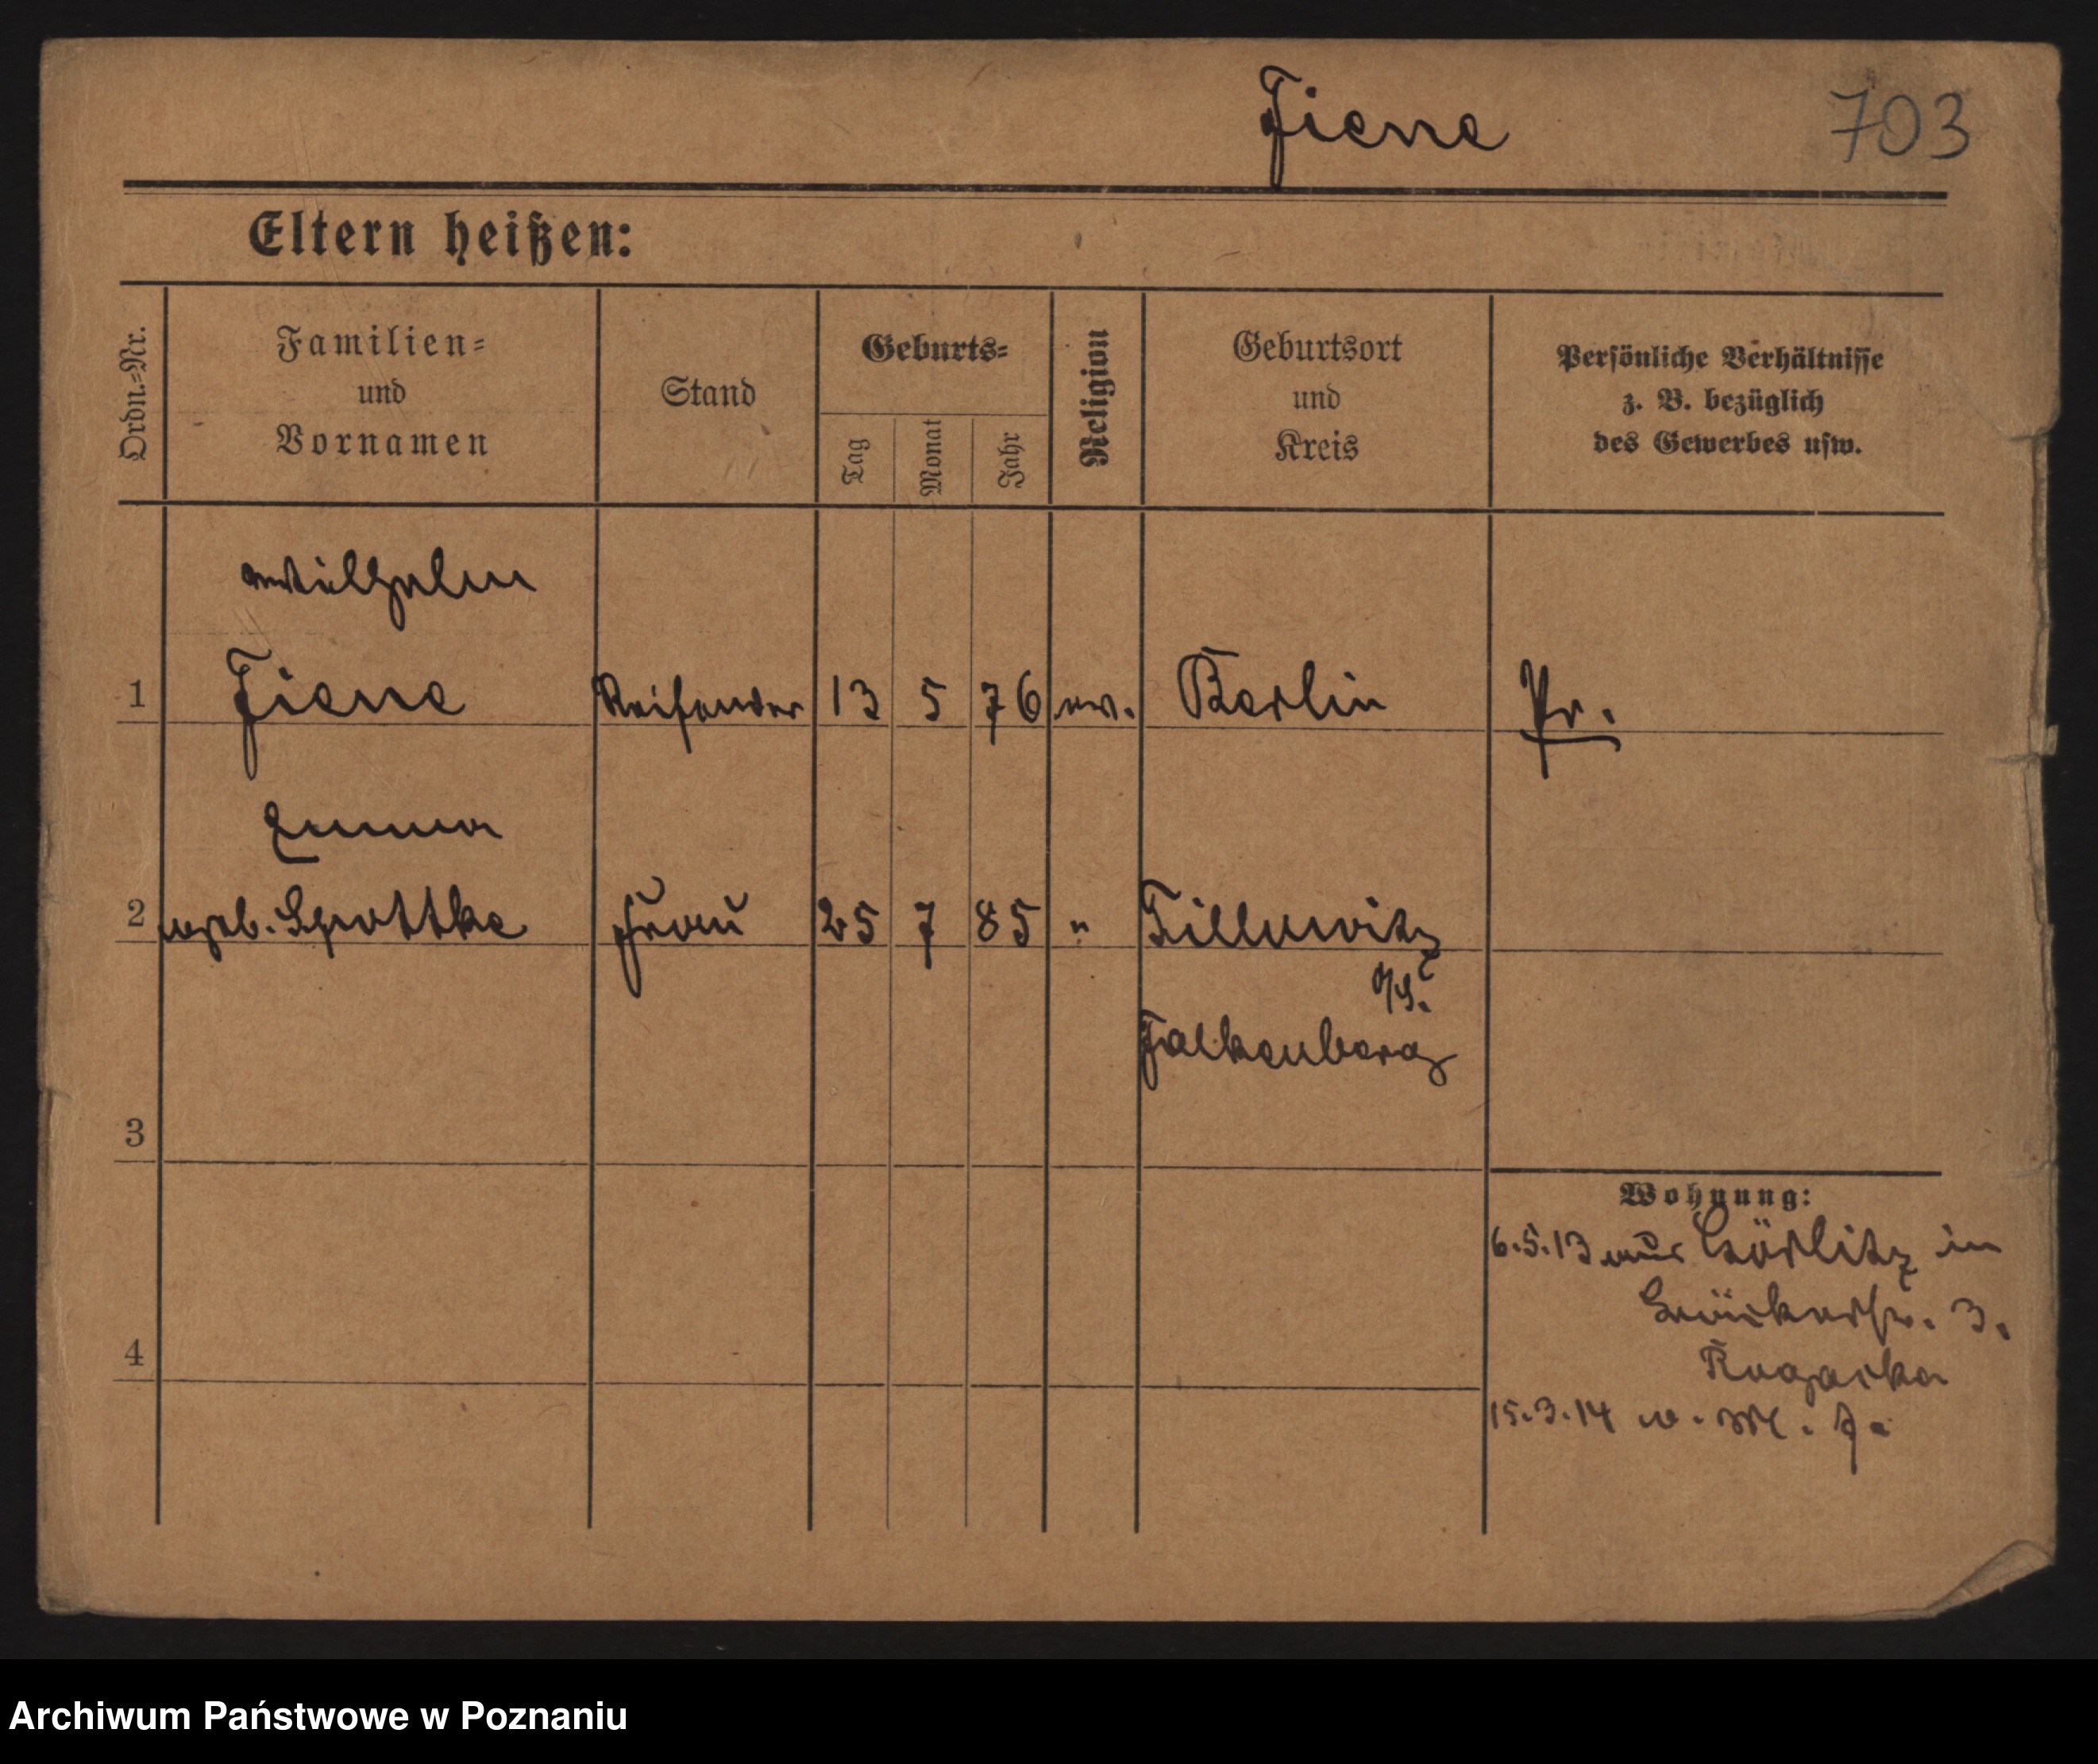 Fiene 703
Eltern heißen:
Ordn.=Nr.
Familien=
und
Vornamen
Stand
Geburts=
Tag
Monat
Jahr
Religion
Geburtsort
und
Kreis
Persönliche Verhältnisse
z. B. bezüglich
des Gewerbes usw.
Wilhelm
1 Fiene Reisender 13 5 76 ev. Berlin Pr.
Emma
2 geb. Spottke Frau 25 7 85 " Tillowitz
O/S.
Falkenberg
3
Wohnung:
6.5.13 aus Görlitz in
3.
4
15.3.14
Archiwum Państwowe w Poznaniu